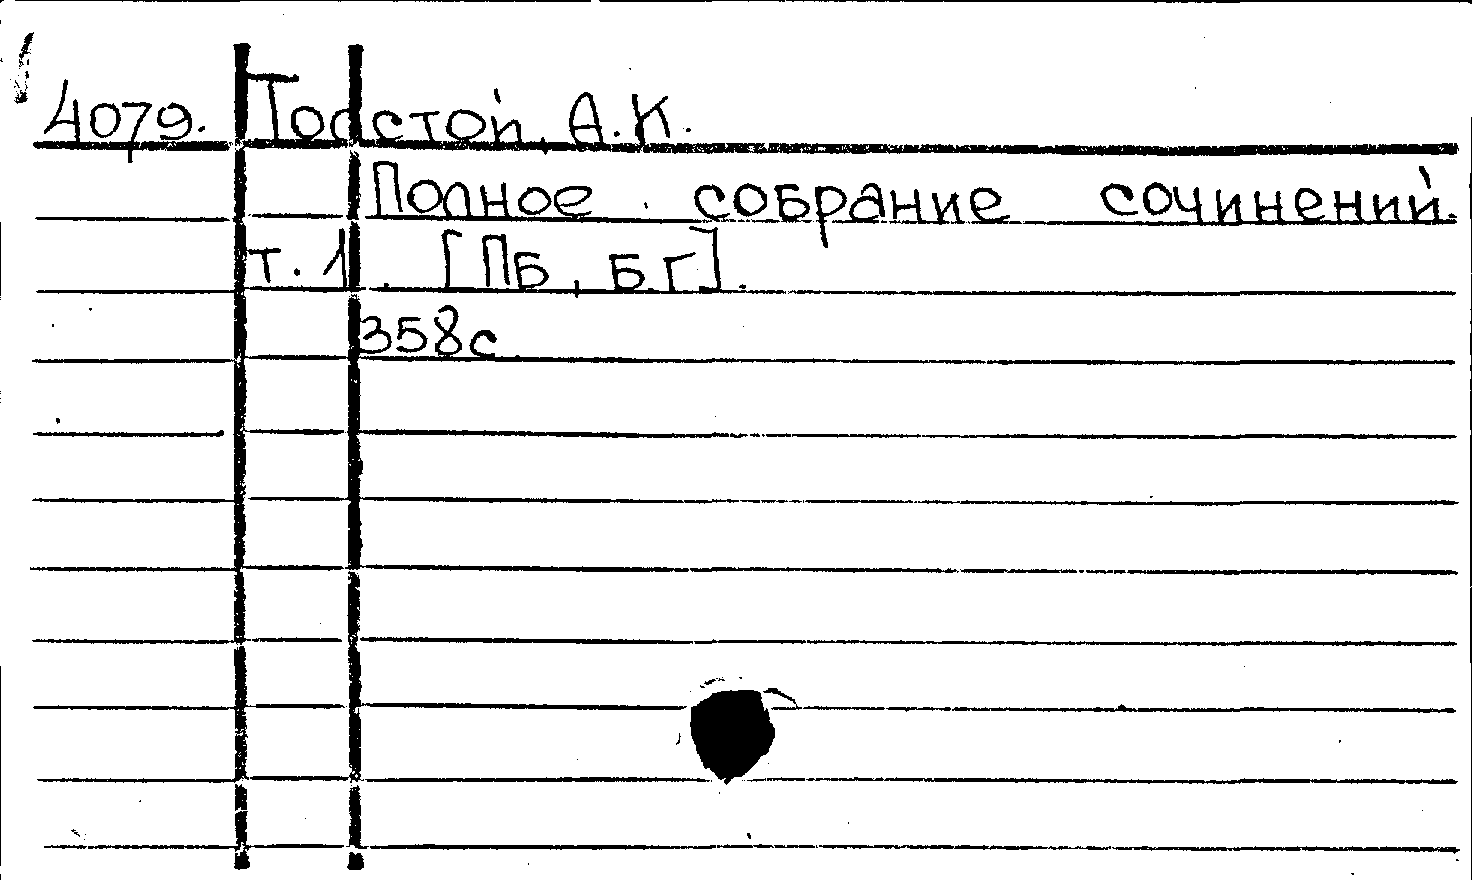 4079. Толстой, А.К.
Полное собрание сочинений.
т. 1. [ПБ, Б.Г].
358с